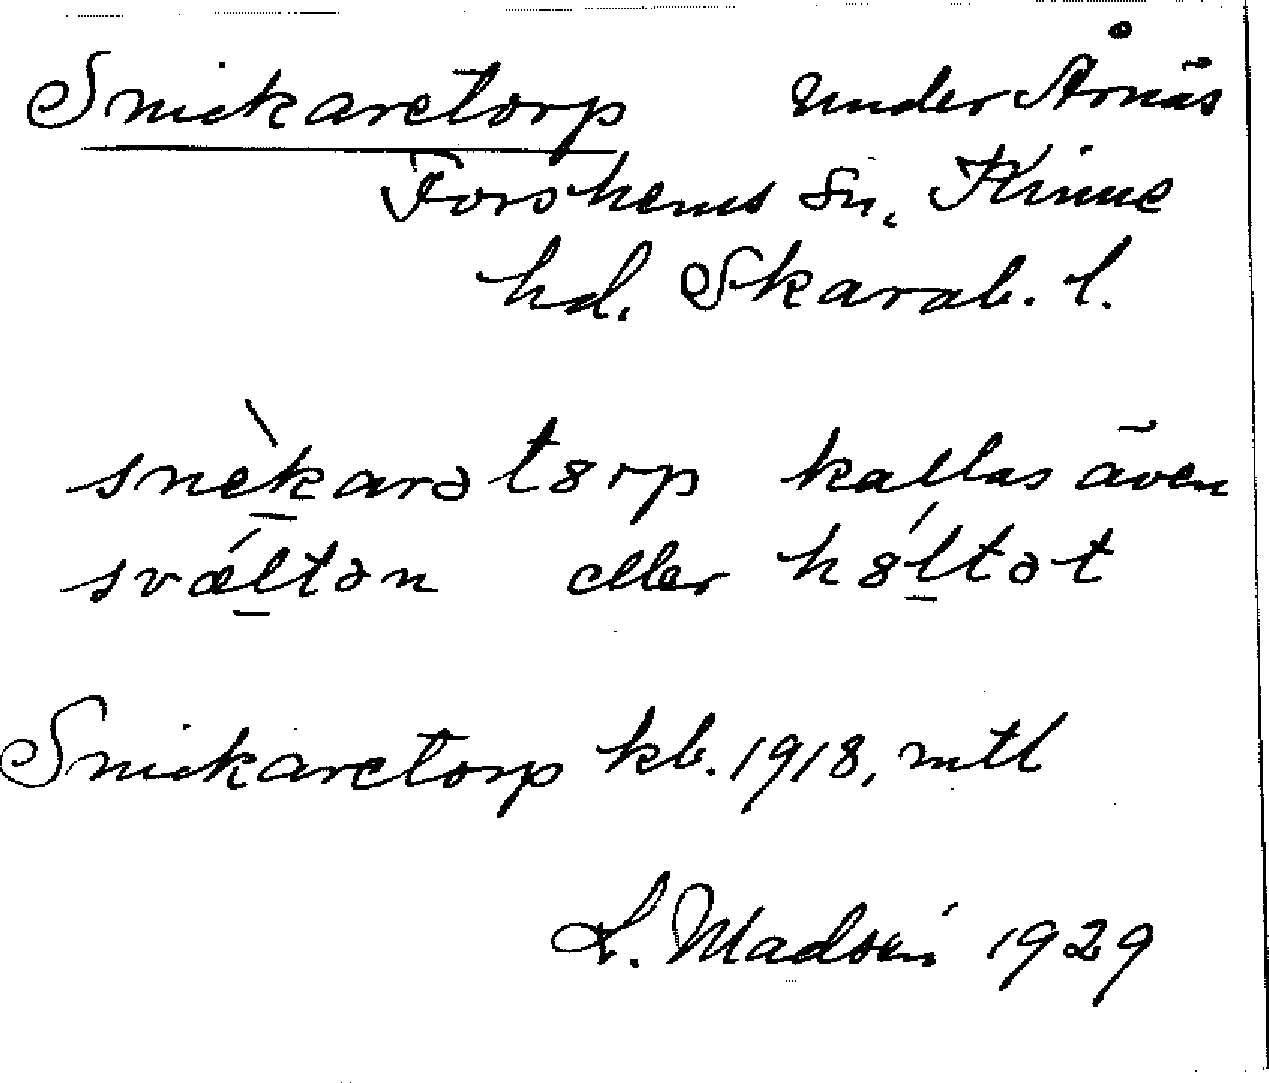 Snickaretorp under Årnäs
Forshems sn, Kinne
hd. Skarab. l.
snèkarətȣrp kallas även
svǽltən eller hȣ́ltət
Snickaretorp kb. 1918, mtl
L. Madsén 1929